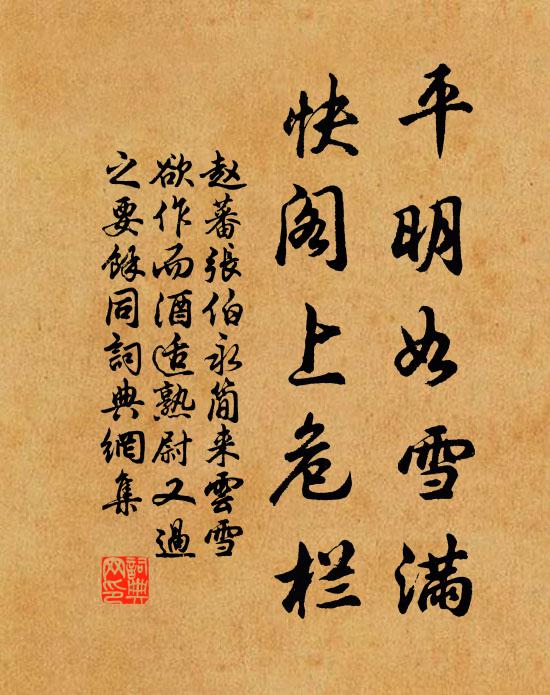 平明如雪满
快阁上危栏
赵蕃張伯永简来雲雪
欲作而酒适熟尉又過
之要餘同詞典網集
詞典网印